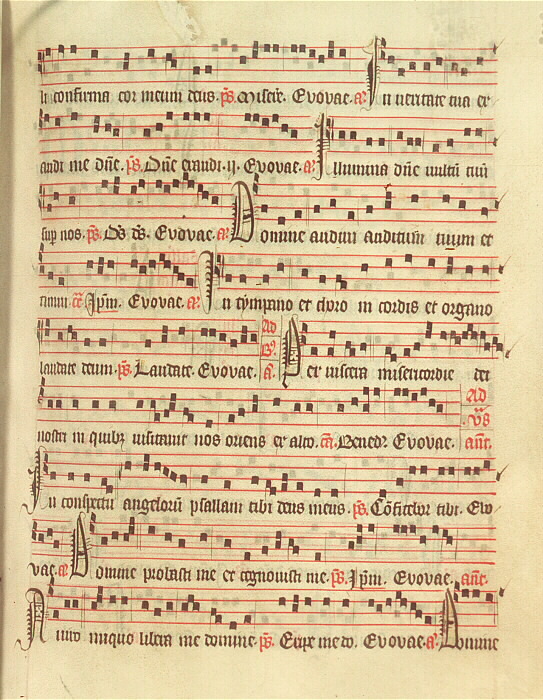 li confirma cor meum deus. ps. Misere. Evovae. a. In veritate tua ex
audi me dne. ps. Dne exaudi. ij. Evovae. a. Illumina dne vultu tuu
sup nos. ps. Evovae. a. Domine audivi auditum tuum et
timui. Ipm. Evovae. a. In tympano et choro in cordis et organo
laudate deum. ps. Laudate. Evovae. a. Per viscera misericordie dei
Ad
B.
nostri in quibz visitavit nos oriens ex alto. ca. Bened. Evovae. ant.
Ad
vs
In conspectu angeloru psallam tibi deus meus. ps. Confitebor tibi. Evo
vae. a. Domine probasti me et cognovisti me. ps. Ipm. Evovae. ant.
A viro iniquo libera me domine. ps. Eripe me do. Evovae. a. Domine